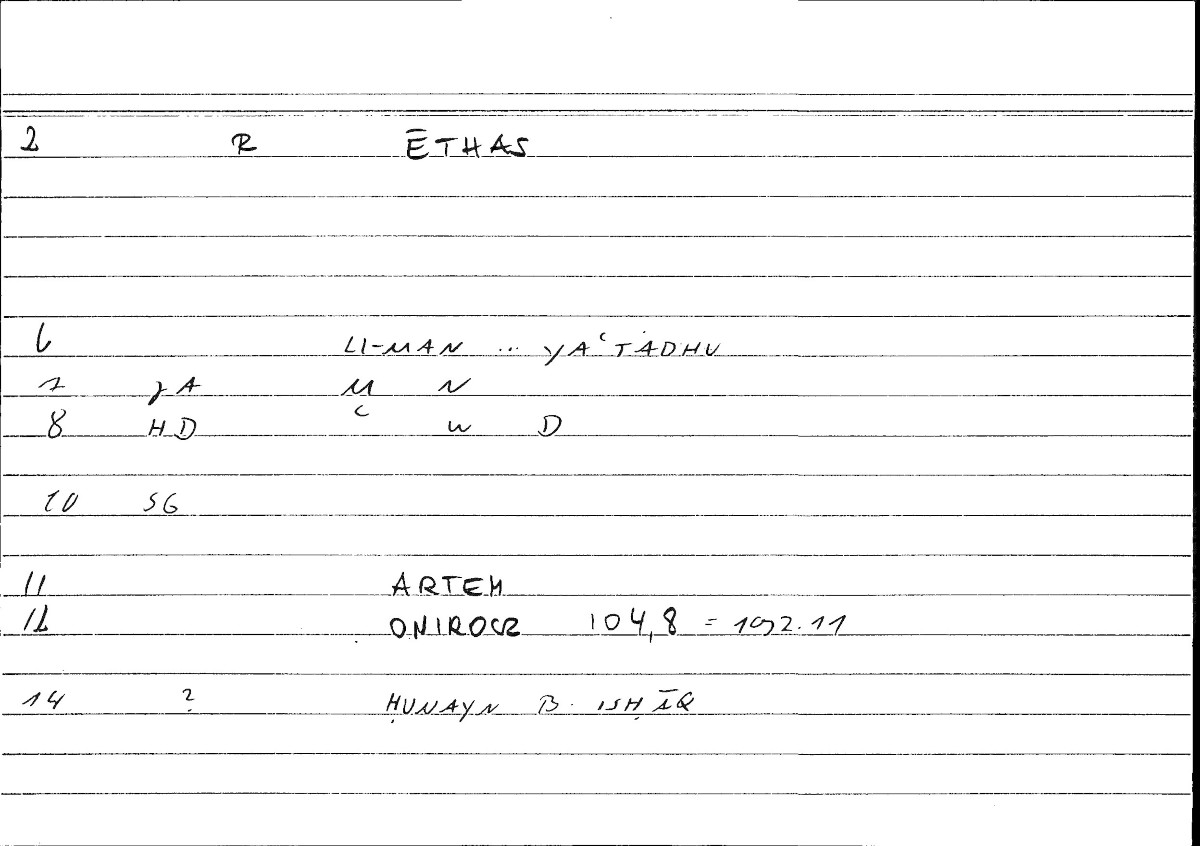 2 R ĒTHAS
6 LI-MAN ... YAʿTĀDHU
7 JA M N
8 HD ʿ W D
10 SG
11 ARTEM
12 ONIROCR 104,8 = 192.11
14 ? ḤUNAYN B. ISḤĀQ